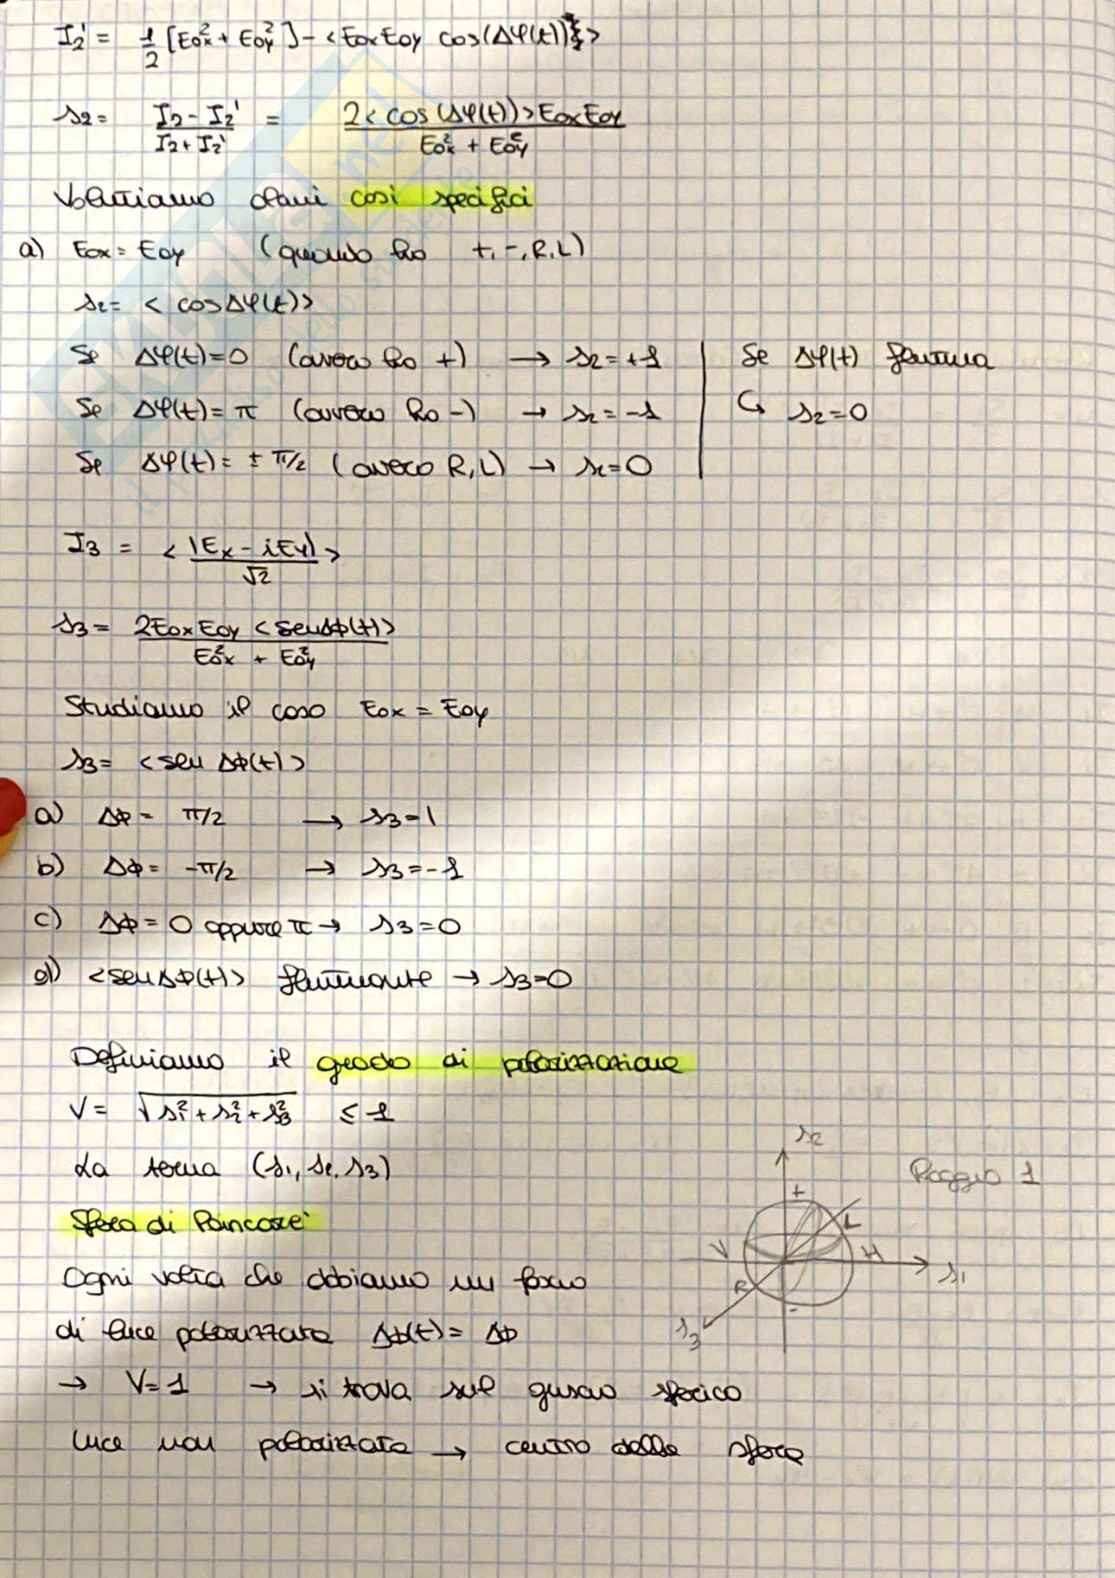 I₂' = 1/2 [E₀ₓ² + E₀ᵧ²] - <E₀ₓE₀ᵧ cos(Δφ(t))>
s₂ = (I₂ - I₂')/(I₂ + I₂') = 2<cos(Δφ(t))>E₀ₓE₀ᵧ / (E₀ₓ² + E₀ᵧ²)
Valutiamo alcuni casi specifici
a) E₀ₓ = E₀ᵧ (quando ho +, -, R, L)
s₂ = <cosΔφ(t)>
Se Δφ(t) = 0 (ovvero ho +) → s₂ = +1
Se Δφ(t) = π (ovvero ho -) → s₂ = -1
Se Δφ(t) = ± π/2 (ovvero R, L) → s₂ = 0
Se Δφ(t) fluttua
↳ s₂ = 0
I₃ = <|Eₓ - iEᵧ|/√2>
s₃ = 2E₀ₓE₀ᵧ <senΔϕ(t)> / (E₀ₓ² + E₀ᵧ²)
Studiamo il caso E₀ₓ = E₀ᵧ
s₃ = <sen Δϕ(t)>
a) Δϕ = π/2 → s₃ = 1
b) Δϕ = -π/2 → s₃ = -1
c) Δϕ = 0 oppure π → s₃ = 0
d) <senΔϕ(t)> fluttuante → s₃ = 0
Definiamo il grado di polarizzazione
V = √(s₁² + s₂² + s₃²) ≤ 1
La terna (s₁, s₂, s₃)
Sfera di Poincaré
Ogni volta che abbiamo un fascio
di luce polarizzata Δϕ(t) = Δϕ
→ V = 1 → si trova sul guscio sferico
Luce non polarizzata → centro della sfera
s₂
Raggio 1
+
L
V
H
s₁
R
-
s₃